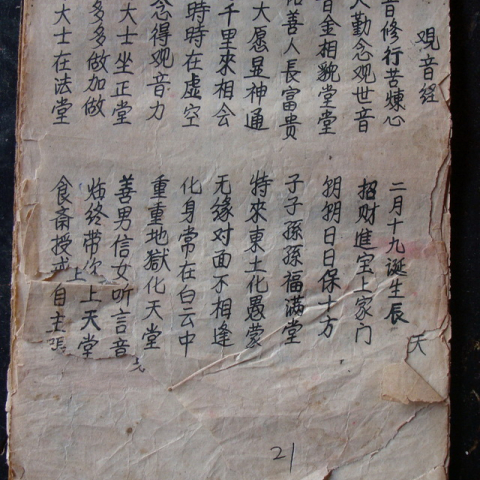 观音经
音修行苦煉心
二月十九诞生辰
勤念观世音
招财進宝上家门
金相貌堂堂
朝朝日日保十方
善人長富貴
子子孫孫福滿堂
大愿显神通
特來東土化愚蒙
千里來相会
无緣对面不相逢
時時在虛空
化身常在白云中
念得观音力
重重地獄化天堂
大士坐正堂
善男信女听言音
多多做加做
临终带上天堂
大士在法堂
食斋授戒自主張
21